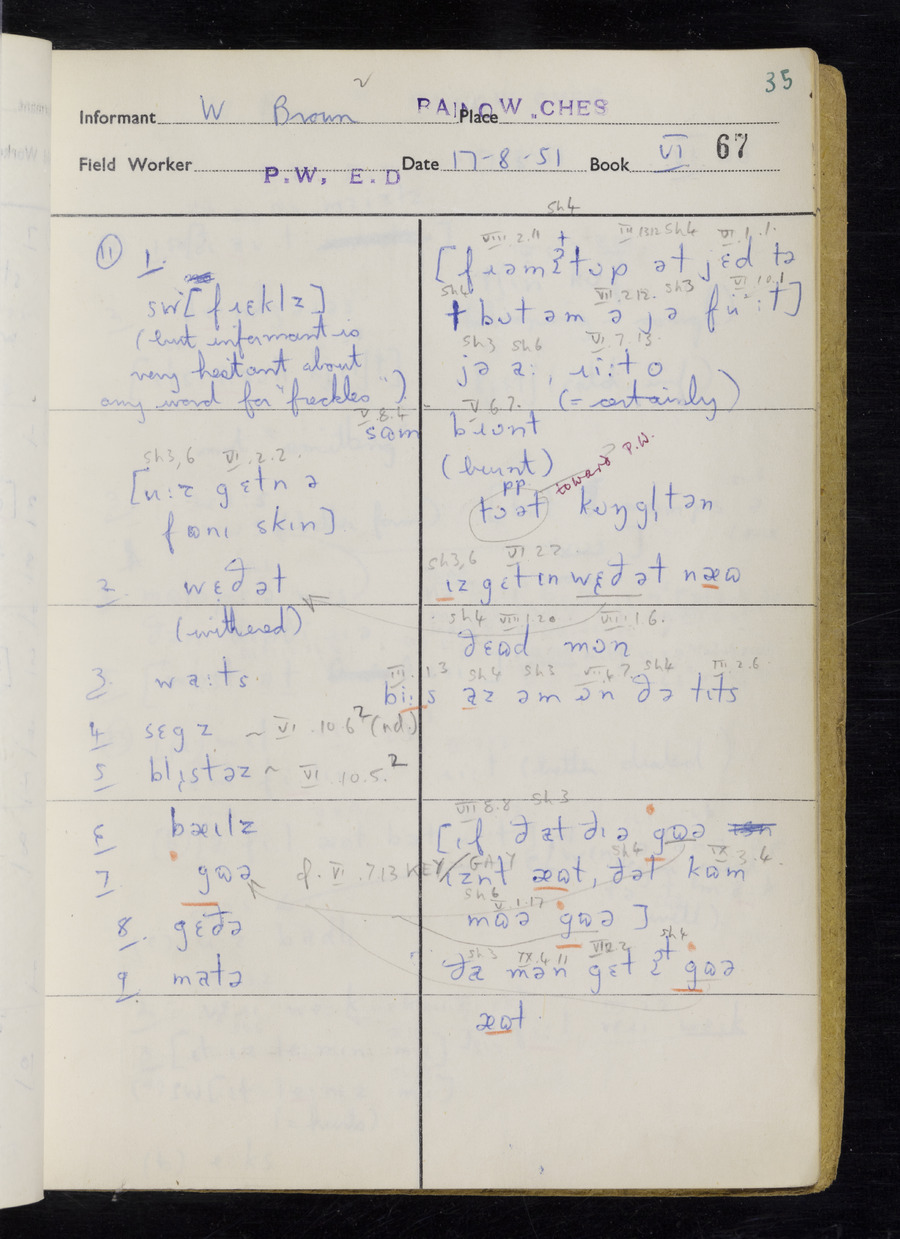 35
Informant W Brown Place RAINOW, CHES
Field Worker P.W, E.D Date 17-8-51 Book VI 67
11 1.
sw [fɹɛklz]
(but informant is
very hesitant about
any word for "freckles")
V.8.4
sh3,6 VI.2.2.
[u:z gɛtn ə
fɒnɪ skɪn]
2 wɛðət
(withered)
3. wa:ts
4 sɛgz ~ VI.10.6² (nd.)
5 blɪstəz ~ VI.10.5.²
6 bæɪlz
7. gɷə cf. VI.7.13 KEY/GAY
8. gɛðə
9 matə
sh4
VIII.2.11 sh4 VI.1.1.
[fɹəm ʔtɒp ət jɛd tə
sh4 VII.2.12. sh3 VI.10.1
sh3 sh6 VI.7.13.
(= certainly)
V.6.7.
bɹɒnt
(burnt)
toward P.W.
pp
sh3,6 VI 2 2
ɪz gɛtɪn wɛðət næɷ
sh4 VIII.1.20 VIII.1.6.
ðɛɷd mɒn
III.1.3 sh4 sh3 VII.4.7. sh4 III.2.6
bi:s az əm ɒn ðə tɪts
VII 8.8 sh3
[ɪf ðat ðɪə gɷə
sh4 IX 3.4.
ɪznt æɷt, ðət kɷm
sh6 V.1.17
mɷə gɷə]
sh3 IX.4.11 sh4
ðɛ mən gɛt ʔt gɷə
æɷt